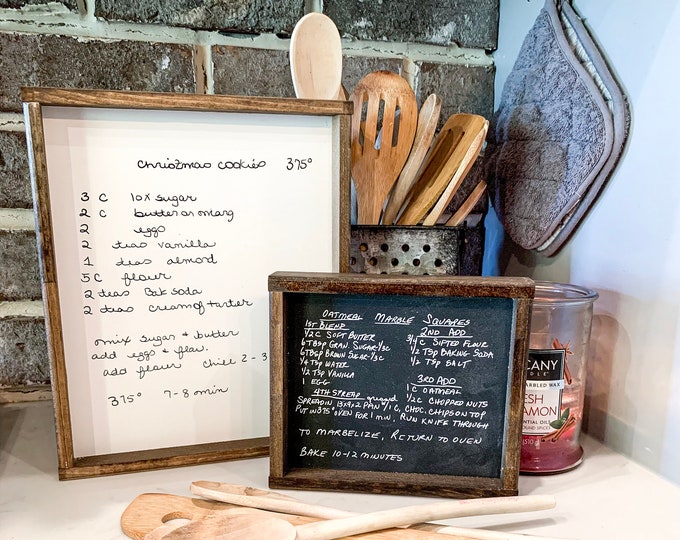 chrisZmas cookies 375°
3 C 10x sugar
2 C butter or marg
2 eggs
2 teas vanilla
1 teas almond
5 C flour
2 teas Bak soda
2 teas cream of tarter
mix sugar & butter
add eggs & flav.
add flour chill 2-3
375° 7-8 min
OATMEAL MARBLE SQUARES
1ST BLEND
1/2 C SOFT BUTTER
6 TBSP GRAN. SUGAR-1/3C
6 TBSP BROWN SUGAR-1/3C
1/4 TSP WATER
1/2 TSP VANILLA
1 EGG
2ND ADD
3/4 C SIFTED FLOUR
1/2 TSP BAKING SODA
1/2 TSP SALT
3RD ADD
1C OATMEAL
1/2C CHOPPED NUTS
4TH SPREAD
SPREAD IN 13x9x2 PAN W/1 C, CHOC. CHIPS ON TOP
PUT IN 375° OVEN FOR 1 MIN, RUN KNIFE THROUGH
TO MARBELIZE, RETURN TO OVEN
BAKE 10-12 MINUTES
CANDLE
MARBLED WAX